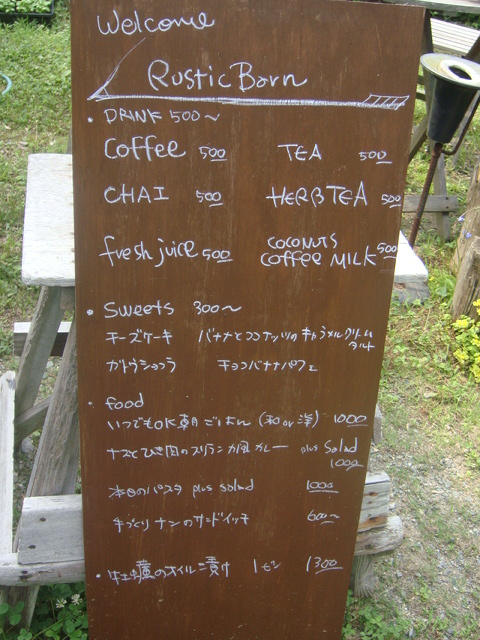 Welcome
Rustic Barn
• DRINK 500～
Coffee 500 TEA 500
CHAI 500 HERBTEA 500
fresh juice 500 COCONUTS COFFEE MILK 500
• Sweets 300～
チーズケーキ バナナとココナッツのキャラメルクリームタルト
ガトウショコラ チョコバナナパフェ
• food
いつでもOK朝ごはん (和or洋) 1000
ナスとひき肉のスリランカ風カレー plus Salad 1000
本日のパスタ plus salad 1000
手づくりナンのサンドイッチ 600～
• 牡蠣のオイル漬け 1ビン 1300